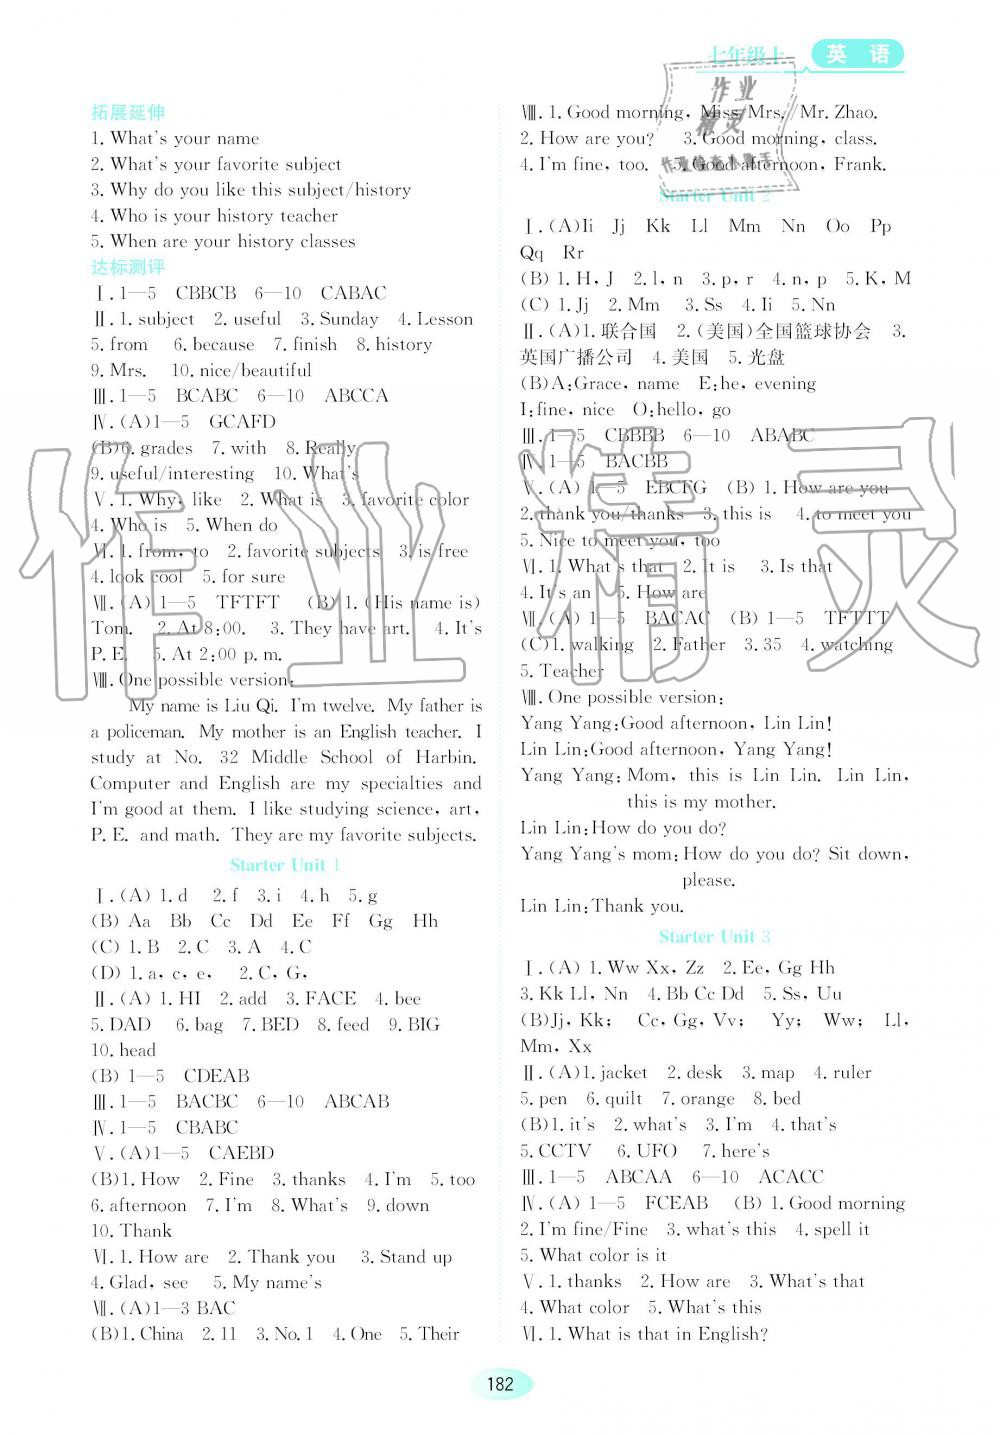 七年级上 英语
拓展延伸
1. What's your name
2. What's your favorite subject
3. Why do you like this subject/history
4. Who is your history teacher
5. When are your history classes
达标测评
Ⅰ. 1—5 CBBCB 6—10 CABAC
Ⅱ. 1. subject 2. useful 3. Sunday 4. Lesson
5. from 6. because 7. finish 8. history
9. Mrs. 10. nice/beautiful
Ⅲ. 1—5 BCABC 6—10 ABCCA
Ⅳ. (A)1—5 GCAFD
(B)6. grades 7. with 8. Really
9. useful/interesting 10. What's
Ⅴ. 1. Why, like 2. What is 3. favorite color
4. Who is 5. When do
Ⅵ. 1. from, to 2. favorite subjects 3. is free
4. look cool 5. for sure
Ⅶ. (A) 1—5 TFTFT (B) 1. (His name is)
Tom. 2. At 8:00. 3. They have art. 4. It's
P. E. 5. At 2:00 p. m.
Ⅷ. One possible version:
My name is Liu Qi. I'm twelve. My father is
a policeman. My mother is an English teacher. I
study at No. 32 Middle School of Harbin.
Computer and English are my specialties and
I'm good at them. I like studying science, art,
P. E. and math. They are my favorite subjects.
Starter Unit 1
Ⅰ. (A) 1. d 2. f 3. i 4. h 5. g
(B) Aa Bb Cc Dd Ee Ff Gg Hh
(C) 1. B 2. C 3. A 4. C
(D) 1. a, c, e, 2. C, G,
Ⅱ. (A) 1. HI 2. add 3. FACE 4. bee
5. DAD 6. bag 7. BED 8. feed 9. BIG
10. head
(B) 1—5 CDEAB
Ⅲ. 1—5 BACBC 6—10 ABCAB
Ⅳ. 1—5 CBABC
Ⅴ. (A)1—5 CAEBD
(B)1. How 2. Fine 3. thanks 4. I'm 5. too
6. afternoon 7. I'm 8. What's 9. down
10. Thank
Ⅵ. 1. How are 2. Thank you 3. Stand up
4. Glad, see 5. My name's
Ⅶ. (A)1—3 BAC
(B)1. China 2. 11 3. No. 1 4. One 5. Their
Ⅷ. 1. Good morning, Miss/Mrs. /Mr. Zhao.
2. How are you? 3. Good morning, class.
4. I'm fine, too. 5. Good afternoon, Frank.
Starter Unit 2
Ⅰ. (A)Ii Jj Kk Ll Mm Nn Oo Pp
Qq Rr
(B) 1. H, J 2. l, n 3. p, r 4. n, p 5. K, M
(C) 1. Jj 2. Mm 3. Ss 4. Ii 5. Nn
Ⅱ. (A)1. 联合国 2. (美国)全国篮球协会 3.
英国广播公司 4. 美国 5. 光盘
(B)A:Grace, name E:he, evening
I:fine, nice O:hello, go
Ⅲ. 1—5 CBBBB 6—10 ABABC
Ⅳ. 1—5 BACBB
Ⅴ. (A) 1—5 EBCFG (B) 1. How are you
2. thank you/thanks 3. this is 4. to meet you
5. Nice to meet you, too
Ⅵ. 1. What's that 2. It is 3. Is that
4. It's an 5. How are
Ⅶ. (A) 1—5 BACAC (B) 1—5 TFTTT
(C)1. walking 2. Father 3. 35 4. watching
5. Teacher
Ⅷ. One possible version:
Yang Yang:Good afternoon, Lin Lin!
Lin Lin:Good afternoon, Yang Yang!
Yang Yang: Mom, this is Lin Lin. Lin Lin,
this is my mother.
Lin Lin:How do you do?
Yang Yang's mom:How do you do? Sit down,
please.
Lin Lin:Thank you.
Starter Unit 3
Ⅰ. (A) 1. Ww Xx, Zz 2. Ee, Gg Hh
3. Kk Ll, Nn 4. Bb Cc Dd 5. Ss, Uu
(B)Jj, Kk; Cc, Gg, Vv; Yy; Ww; Ll,
Mm, Xx
Ⅱ. (A)1. jacket 2. desk 3. map 4. ruler
5. pen 6. quilt 7. orange 8. bed
(B)1. it's 2. what's 3. I'm 4. that's
5. CCTV 6. UFO 7. here's
Ⅲ. 1—5 ABCAA 6—10 ACACC
Ⅳ. (A) 1—5 FCEAB (B) 1. Good morning
2. I'm fine/Fine 3. what's this 4. spell it
5. What color is it
Ⅴ. 1. thanks 2. How are 3. What's that
4. What color 5. What's this
Ⅵ. 1. What is that in English?
182
作业精灵
作业精灵
作业检查小助手